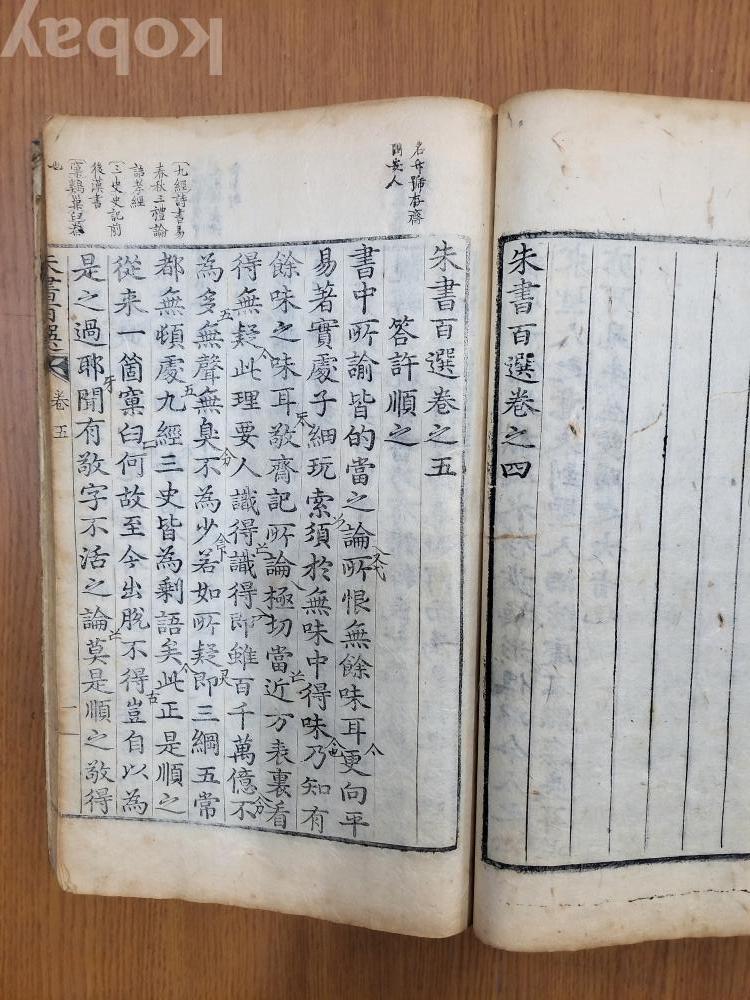 kobay
朱書百選卷之四
名升號存齋
閩縣人
朱書百選卷之五
答許順之
書中所諭皆的當之論所恨無餘味耳更向平
易著實處子細玩索須於無味中得味乃知有
餘味之味耳敬齋記所論極切當近方表裏看
得無疑此理要人識得識得即雖百千萬億不
為多無聲無臭不為少若如所疑即三綱五常
都無頓處九經三史皆為剩語矣此正是順之
從来一箇窠臼何故至今出脫不得豈自以為
是之過耶聞有敬字不活之論莫是順之敬得
九經詩書易
春秋三禮論
語孝經
三史史記前
後漢書
窠鷄巢臼舂
也
朱書百選
卷五
一